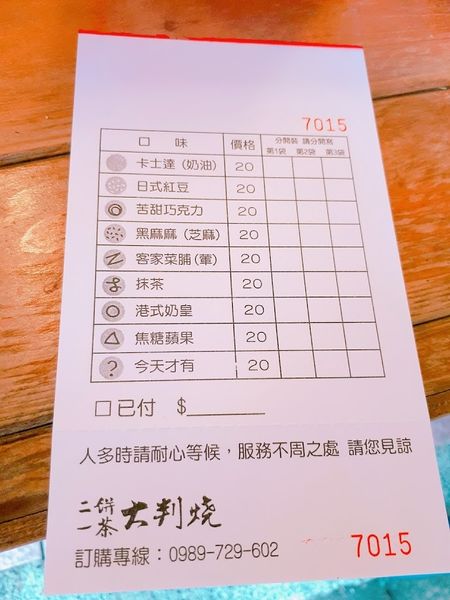 7015
口 味 價格 分開裝 請分開寫
第1袋 第2袋 第3袋
卡士達(奶油) 20
日式紅豆 20
苦甜巧克力 20
黑麻麻(芝麻) 20
客家菜脯(葷) 20
抹茶 20
港式奶皇 20
焦糖蘋果 20
? 今天才有 20
□已付 $________
人多時請耐心等候,服務不周之處 請您見諒
二餅一茶 大判燒
訂購專線:0989-729-602
7015